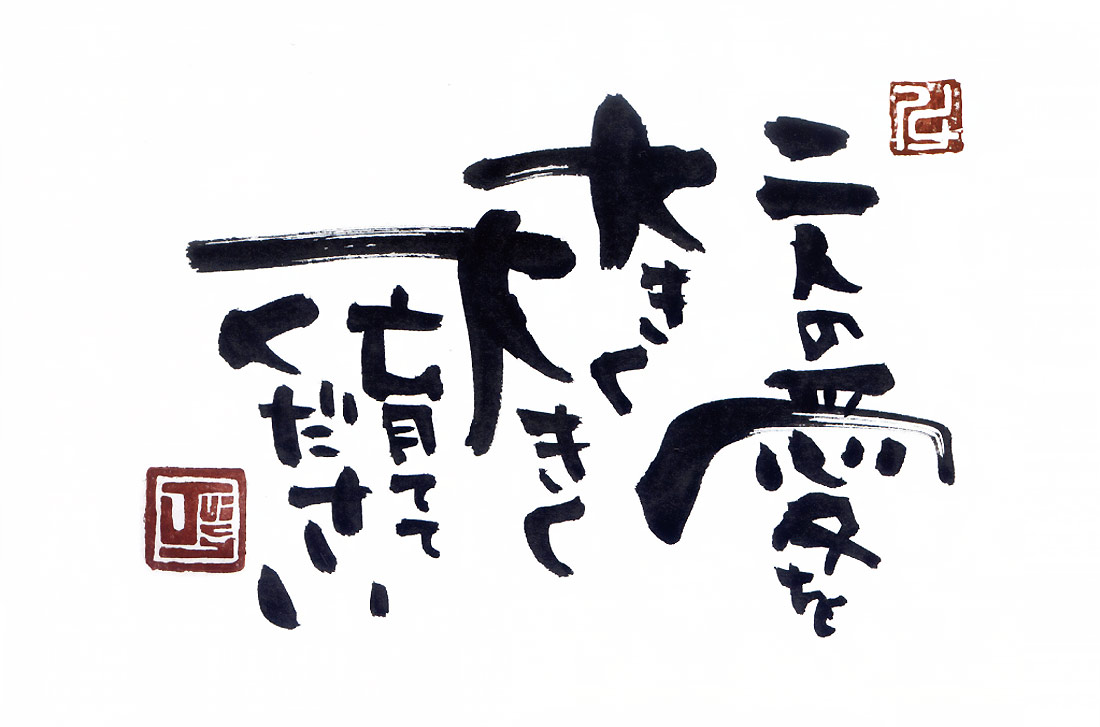 二人の愛を
大きく
大きく
育てて
ください